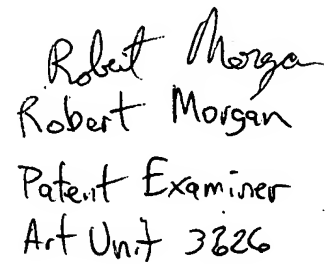 Robert Morgan
Robert Morgan
Patent Examiner
Art Unit 3626